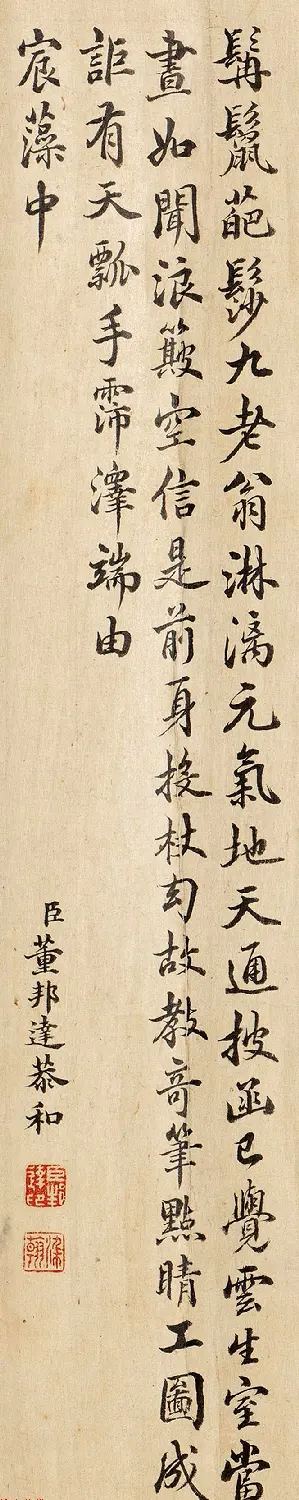 髯鬣葩髿九老翁淋漓元氣地天通披函已覺雲生室當
晝如聞浪簸空信是前身投杖幻故教奇筆點睛工圖成
詎有天瓢手霈澤端由
宸藻中
臣董邦達恭和
臣邦達印
染翰